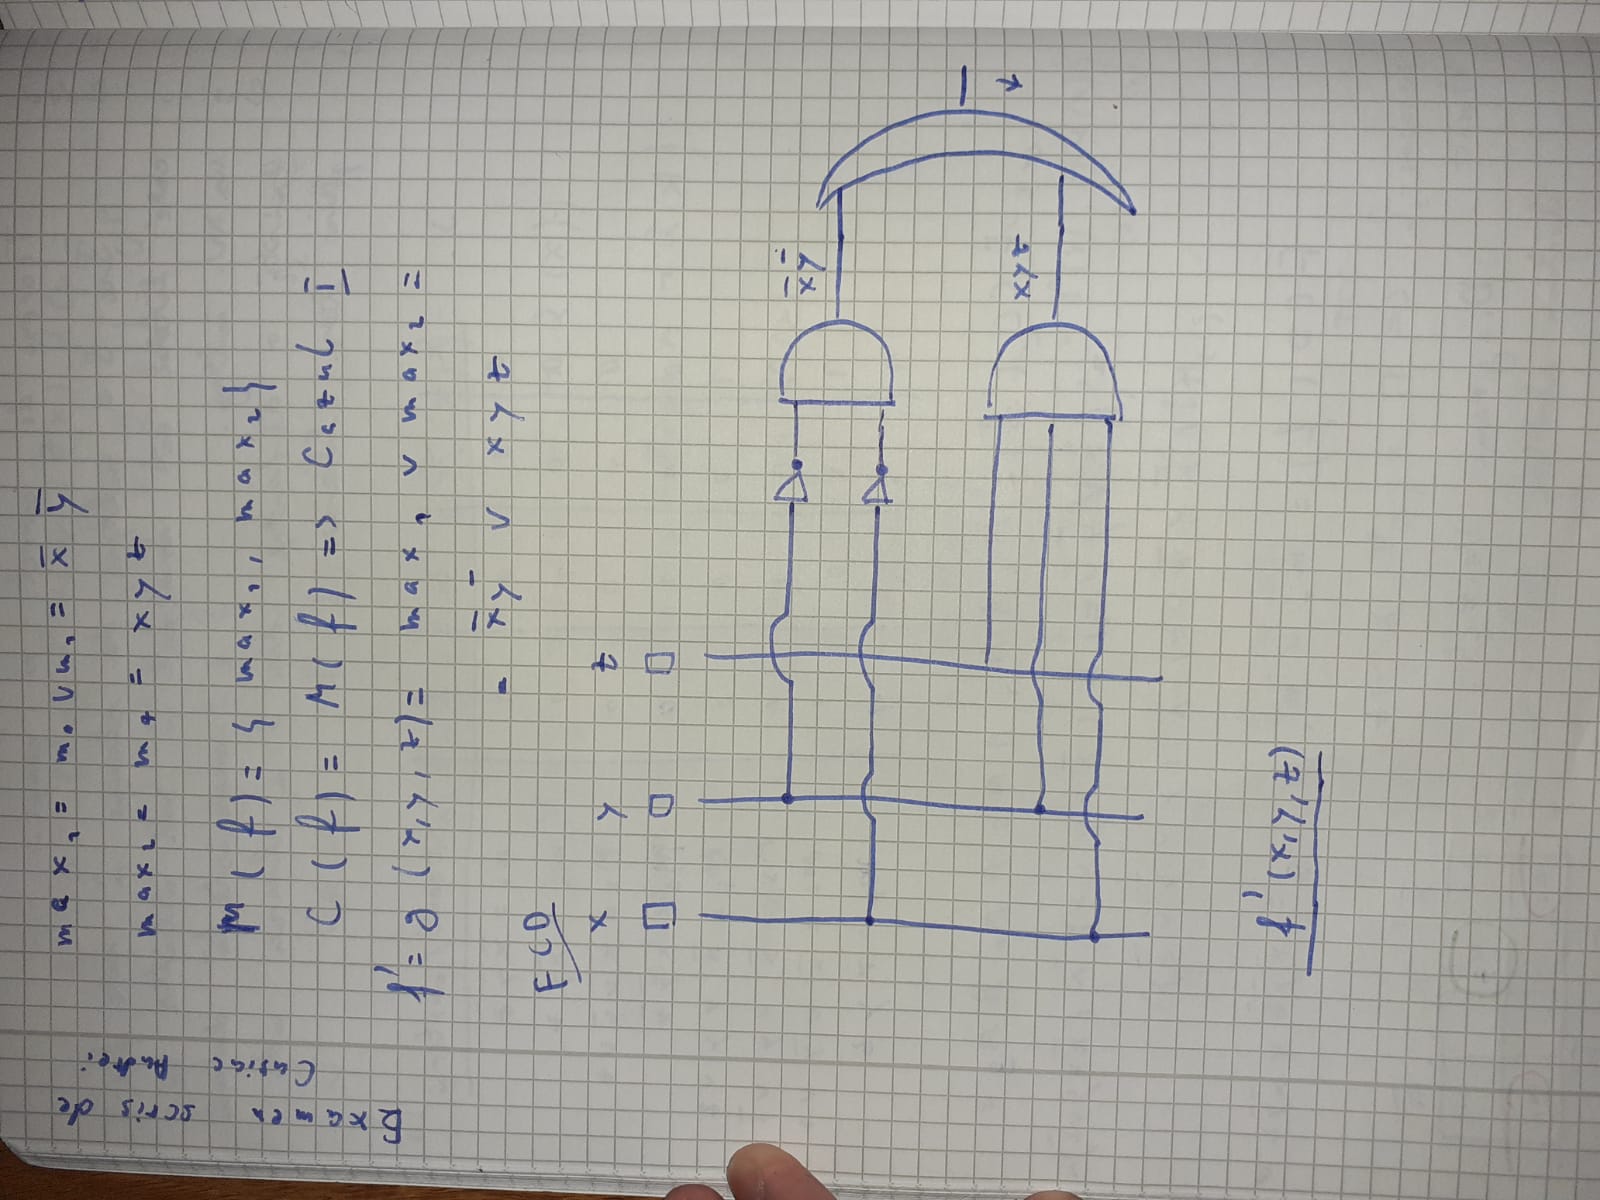 Examen scris de
Andrei
max₁ = m₀ ∨ m₁ = x̅ y̅
max₂ = m₇ = x y z
M (f) = { max₁, max₂ }
C (f) = M (f) => Cazul I
f' = g (x, y, z) = max₁ ∨ max₂ =
= x̅ y̅ ∨ x y z
FCD
x y z
x̅ y̅
x y z
f' (x, y, z)